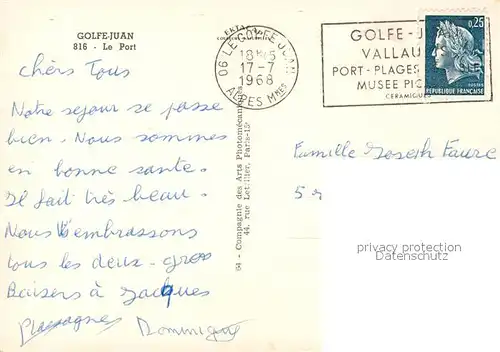 GOLFE-JUAN
816 - Le Port
chèrs Tous
Notre sejour se passe
bien. Nous sommes
en bonne sante.
Il fait très beau.
Nous embrassons
tous les deux. gros
Baisers à Jacques
Dominique
EXTRA
06 LE GOLFE JUAN
18H15
17-7
1968
ALPES MMES
GOLFE-J
VALLAU
PORT-PLAGES
MUSEE PIC
CERAMIQUES
0,25
REPUBLIQUE FRANÇAISE
64 - Compagnie des Arts Photomécaniques
44, rue Letellier, Paris-15e
Famille Joseph Faure
5
privacy protection
Datenschutz